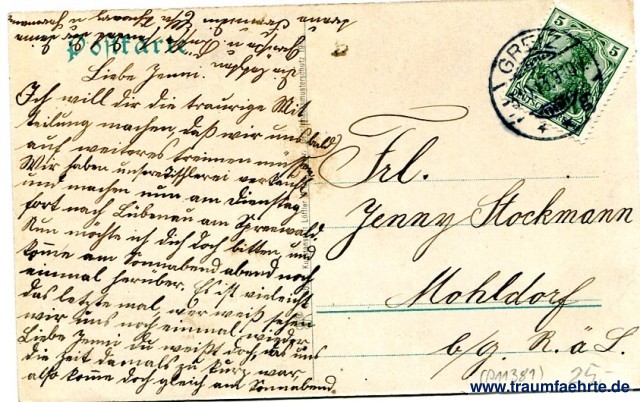 Postkarte
Liebe Jenni.
Ich will dir die traurige Mit
teilung machen, daß wir uns bald
auf weiteres trennen müssen
Wir haben unsre Tischlerei verkauft
und machen nun am Dienstag
fort nach Lübenau am Spreewald.
Nun möchte ich dich doch bitten und
komme am Sonnabend abend noch
einmal herüber. Es ist vieleicht
das letzte mal, wer weiß sehen
wir uns noch einmal wieder
Liebe Jenni du weißt doch, das uns
die Zeit damals zu kurz war,
also komme doch gleich am Sonnabend.
GREIZ
5 5
Frl.
Jenny Stockmann
Mohldorf
b/g R. ä L.
(A11381) 25,-
www.traumfaehrte.de